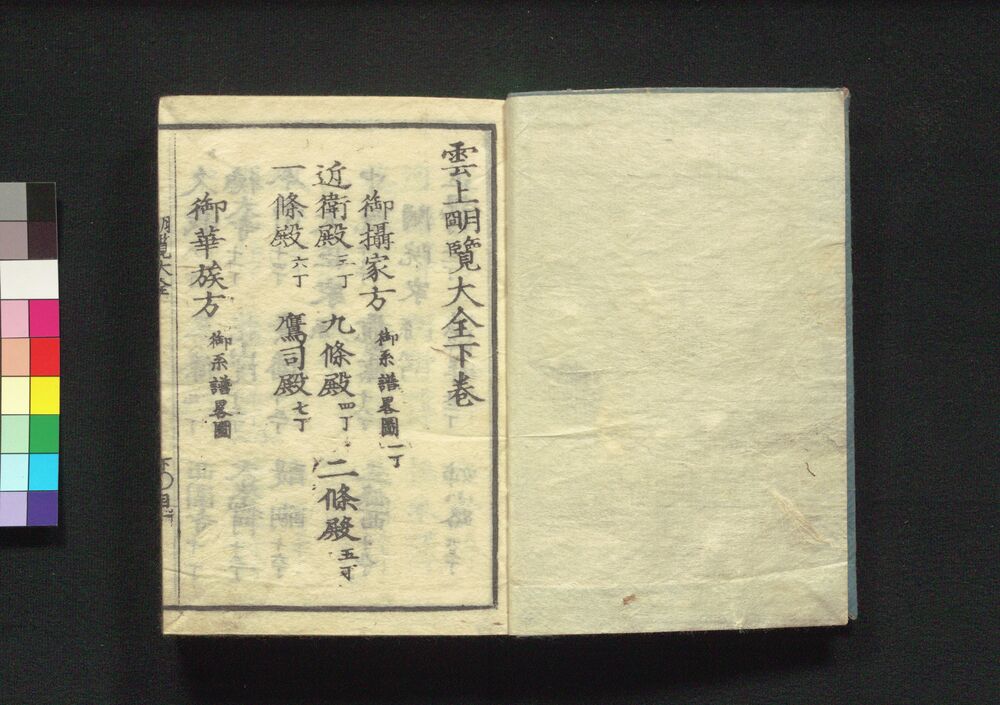 雲上明覧大全下巻
御攝家方 御系譜畧圖 一丁
近衛殿 三丁 九條殿 四丁 二條殿 五丁
一條殿 六丁 鷹司殿 七丁
御華族方 御系譜畧圖
明覧大全